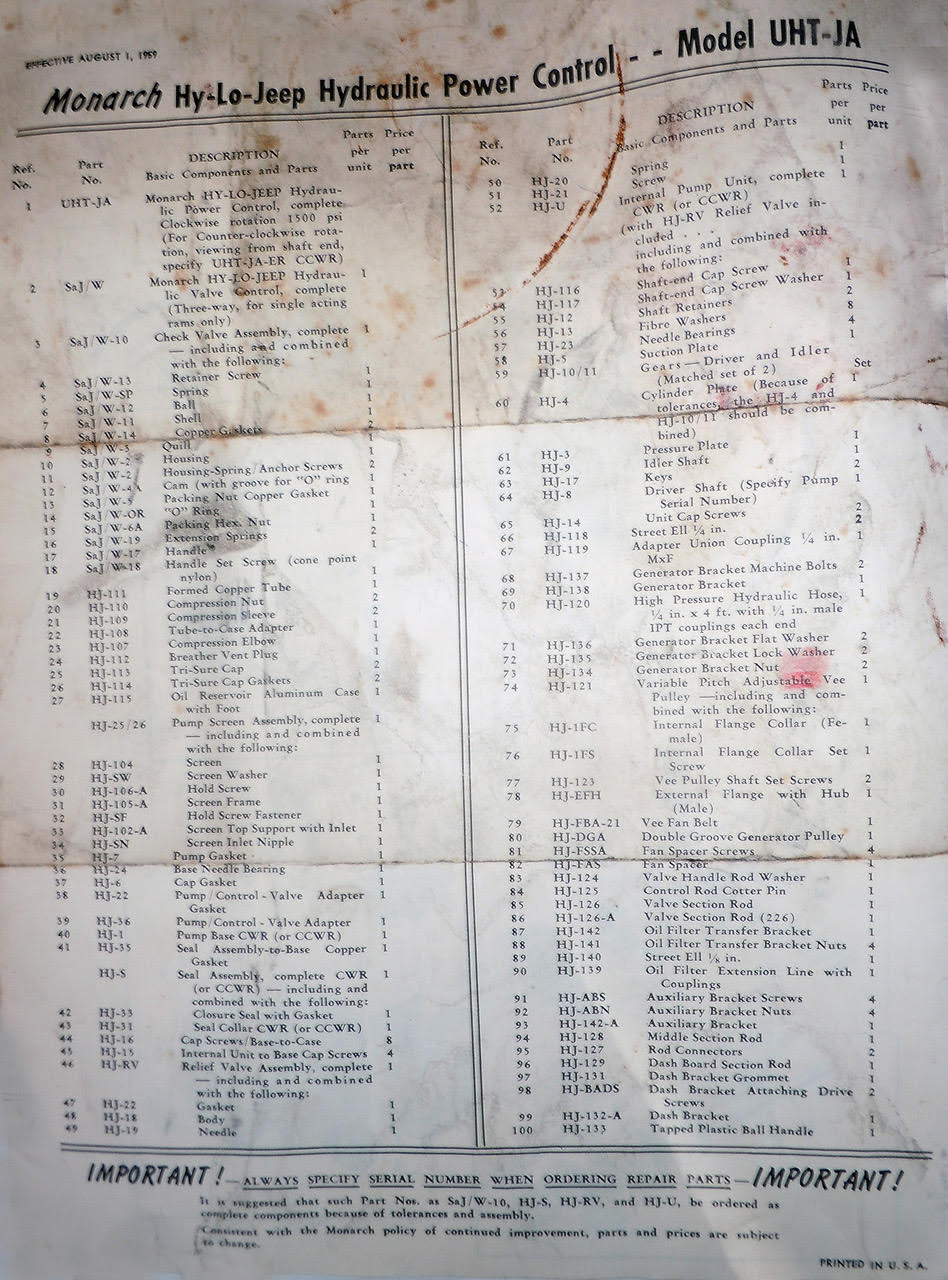 EFFECTIVE AUGUST 1, 1959
Monarch Hy-Lo-Jeep Hydraulic Power Control - - Model UHT-JA
Ref. No. Part No. DESCRIPTION Basic Components and Parts Parts per unit Price per part
1 UHT-JA Monarch HY-LO-JEEP Hydrau-
lic Power Control, complete
Clockwise rotation 1500 psi
(For Counter-clockwise rota-
tion, viewing from shaft end,
specify UHT-JA-ER CCWR)
2 SaJ/W Monarch HY-LO-JEEP Hydrau- 1
lic Valve Control, complete
(Three-way, for single acting
rams only)
3 SaJ/W-10 Check Valve Assembly, complete 1
— including and combined
with the following:
4 SaJ/W-13 Retainer Screw 1
5 SaJ/W-SP Spring 1
6 SaJ/W-12 Ball 1
7 SaJ/W-11 Shell 1
8 SaJ/W-14 Copper Gaskets 2
9 SaJ/W-3 Quill 1
10 SaJ/W-2 Housing 1
11 SaJ/W-2 Housing-Spring/Anchor Screws 2
12 SaJ/W-4A Cam (with groove for "O" ring 1
13 SaJ/W-5 Packing Nut Copper Gasket 1
14 SaJ/W-OR "O" Ring 1
15 SaJ/W-6A Packing Hex. Nut 1
16 SaJ/W-19 Extension Springs 2
17 SaJ/W-17 Handle 1
18 SaJ/W-18 Handle Set Screw (cone point
nylon) 1
19 HJ-111 Formed Copper Tube 1
20 HJ-110 Compression Nut 2
21 HJ-109 Compression Sleeve 2
22 HJ-108 Tube-to-Case Adapter 1
23 HJ-107 Compression Elbow 1
24 HJ-112 Breather Vent Plug 1
25 HJ-113 Tri-Sure Cap 2
26 HJ-114 Tri-Sure Cap Gaskets 2
27 HJ-115 Oil Reservoir Aluminum Case 1
with Foot
HJ-25/26 Pump Screen Assembly, complete 1
— including and combined
with the following:
28 HJ-104 Screen 1
29 HJ-SW Screen Washer 1
30 HJ-106-A Hold Screw 1
31 HJ-105-A Screen Frame 1
32 HJ-SF Hold Screw Fastener 1
33 HJ-102-A Screen Top Support with Inlet 1
34 HJ-SN Screen Inlet Nipple 1
35 HJ-7 Pump Gasket 1
36 HJ-24 Base Needle Bearing 1
37 HJ-6 Cap Gasket 1
38 HJ-22 Pump/Control-Valve Adapter 1
Gasket
39 HJ-36 Pump/Control-Valve Adapter 1
40 HJ-1 Pump Base CWR (or CCWR) 1
41 HJ-35 Seal Assembly-to-Base Copper 1
Gasket
HJ-S Seal Assembly, complete CWR 1
(or CCWR) — including and
combined with the following:
42 HJ-33 Closure Seal with Gasket 1
43 HJ-31 Seal Collar CWR (or CCWR) 1
44 HJ-16 Cap Screws/Base-to-Case 8
45 HJ-15 Internal Unit to Base Cap Screws 4
46 HJ-RV Relief Valve Assembly, complete 1
— including and combined
with the following:
47 HJ-22 Gasket 1
48 HJ-18 Body 1
49 HJ-19 Needle 1
Ref. No. Part No. DESCRIPTION Basic Components and Parts Parts per unit Price per part
50 HJ-20 Spring 1
51 HJ-21 Screw 1
52 HJ-U Internal Pump Unit, complete 1
CWR (or CCWR)
(with HJ-RV Relief Valve in-
cluded . . .
including and combined with
the following:
53 HJ-116 Shaft-end Cap Screw 1
54 HJ-117 Shaft-end Cap Screw Washer 1
55 HJ-12 Shaft Retainers 2
56 HJ-13 Fibre Washers 8
57 HJ-23 Needle Bearings 4
58 HJ-5 Suction Plate 1
59 HJ-10/11 Gears—Driver and Idler
(Matched set of 2) Set
60 HJ-4 Cylinder Plate (Because of 1
tolerances, the HJ-4 and
HJ-10/11 should be com-
bined)
61 HJ-3 Pressure Plate 1
62 HJ-9 Idler Shaft 1
63 HJ-17 Keys 2
64 HJ-8 Driver Shaft (Specify Pump 1
Serial Number)
65 HJ-14 Unit Cap Screws 2
66 HJ-118 Street Ell 1/4 in. 2
67 HJ-119 Adapter Union Coupling 1/4 in. 1
MxF
68 HJ-137 Generator Bracket Machine Bolts 2
69 HJ-138 Generator Bracket 1
70 HJ-120 High Pressure Hydraulic Hose, 1
1/4 in. x 4 ft. with 1/4 in. male
IPT couplings each end
71 HJ-136 Generator Bracket Flat Washer 2
72 HJ-135 Generator Bracket Lock Washer 2
73 HJ-134 Generator Bracket Nut 2
74 HJ-121 Variable Pitch Adjustable Vee 1
Pulley —including and com-
bined with the following:
75 HJ-1FC Internal Flange Collar (Fe- 1
male)
76 HJ-1FS Internal Flange Collar Set 1
Screw
77 HJ-123 Vee Pulley Shaft Set Screws 2
78 HJ-EFH External Flange with Hub 1
(Male)
79 HJ-FBA-21 Vee Fan Belt 1
80 HJ-DGA Double Groove Generator Pulley 1
81 HJ-FSSA Fan Spacer Screws 4
82 HJ-FAS Fan Spacer 1
83 HJ-124 Valve Handle Rod Washer 1
84 HJ-125 Control Rod Cotter Pin 1
85 HJ-126 Valve Section Rod 1
86 HJ-126-A Valve Section Rod (226) 1
87 HJ-142 Oil Filter Transfer Bracket 1
88 HJ-141 Oil Filter Transfer Bracket Nuts 4
89 HJ-140 Street Ell 1/8 in. 1
90 HJ-139 Oil Filter Extension Line with 1
Couplings
91 HJ-ABS Auxiliary Bracket Screws 4
92 HJ-ABN Auxiliary Bracket Nuts 4
93 HJ-142-A Auxiliary Bracket 1
94 HJ-128 Middle Section Rod 1
95 HJ-127 Rod Connectors 2
96 HJ-129 Dash Board Section Rod 1
97 HJ-131 Dash Bracket Grommet 1
98 HJ-BADS Dash Bracket Attaching Drive 2
Screws
99 HJ-132-A Dash Bracket 1
100 HJ-133 Tapped Plastic Ball Handle 1
IMPORTANT!—ALWAYS SPECIFY SERIAL NUMBER WHEN ORDERING REPAIR PARTS—IMPORTANT!
It is suggested that such Part Nos. as SaJ/W-10, HJ-S, HJ-RV, and HJ-U, be ordered as
complete components because of tolerances and assembly.
Consistent with the Monarch policy of continued improvement, parts and prices are subject
to change.
PRINTED IN U. S. A.